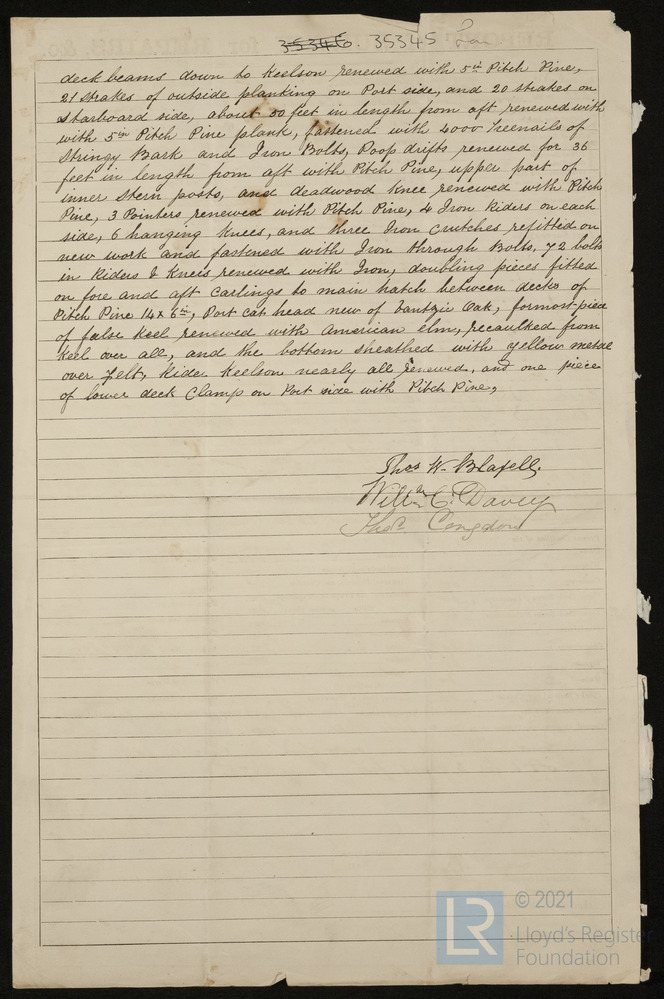 35346. 35345 Lon
deck beams down to Keelson renewed with 5 in Pitch Pine,
21 Strakes of outside planking on Port side, and 20 strakes on
starboard side, about 50 feet in length from aft renewed with
with 5 in Pitch Pine plank, fastened with 4000 Treenails of
Stringy Bark and Iron Bolts, Poop drifts renewed for 36
feet in length from aft with Pitch Pine, upper part of
inner Stern posts, and deadwood Knee renewed with Pitch
Pine, 3 Pointers renewed with Pitch Pine, 4 Iron Riders on each
side, 6 hanging Knees, and three Iron Crutches refitted on
new work and fastened with Iron through Bolts, 72 bolts
in Riders & Knees renewed with Iron, doubling pieces fitted
on fore and aft Carlings to main hatch between decks of
Pitch Pine 14 x 6 in, Port cat head new of Dantzic Oak, formost piece
of false Keel renewed with American elm, recaulked from
Keel over all, and the bottom sheathed with yellow metal
over felt, Keelson nearly all renewed, and one piece
of lower deck Clamp on Port side with Pitch Pine,
Thos W. Blafell.
Willm C. Davey
Thos Congdon
LR
© 2021
Lloyd's Register
Foundation